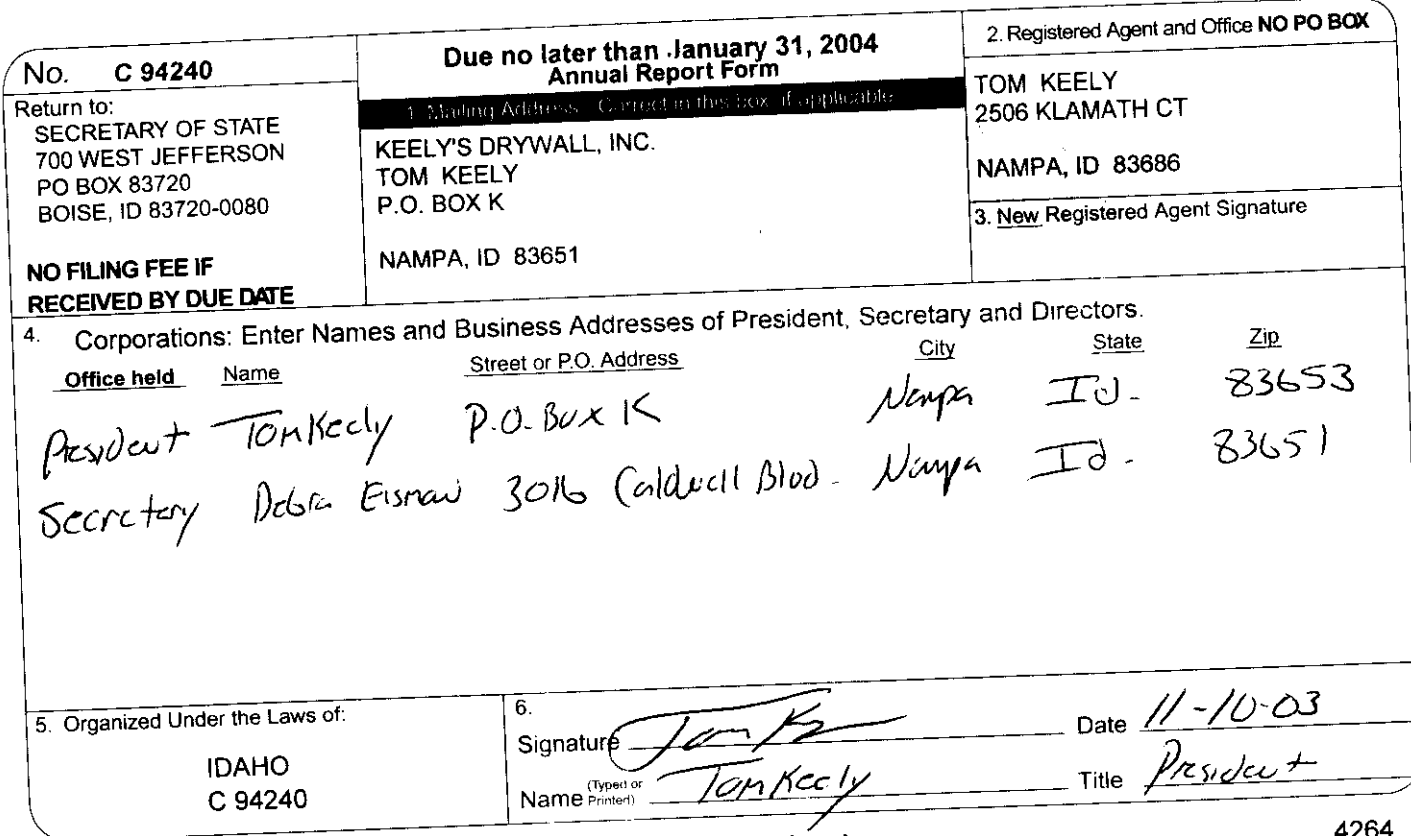 No. C 94240
Return to:
SECRETARY OF STATE
700 WEST JEFFERSON
PO BOX 83720
BOISE, ID 83720-0080
NO FILING FEE IF
RECEIVED BY DUE DATE
Due no later than January 31, 2004
Annual Report Form
1. Mailing Address - Correct in this box, if applicable
KEELY'S DRYWALL, INC.
TOM KEELY
P.O. BOX K
NAMPA, ID 83651
2. Registered Agent and Office NO PO BOX
TOM KEELY
2506 KLAMATH CT
NAMPA, ID 83686
3. New Registered Agent Signature
4. Corporations: Enter Names and Business Addresses of President, Secretary and Directors.
Office held Name Street or P.O. Address City State Zip
President Tom Keely P.O. Box K Nampa Id. 83653
Secretary Debra Eisman 3016 Caldwell Blvd. Nampa Id. 83651
5. Organized Under the Laws of:
IDAHO
C 94240
6.
Signature Tom K Date 11-10-03
Name (Typed or Printed) Tom Keely Title President
4264